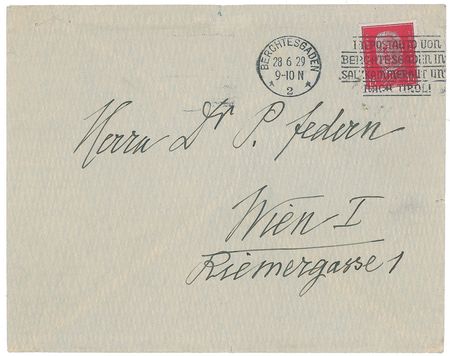 BERCHTESGADEN
28.6.29
9-10 N
2
POSTAUTO VON
BERCHTESGADEN IN
SALZKAMMERGUT UN
NACH TIROL!
Herrn Dr P. Federn
Wien I
Riemergasse 1